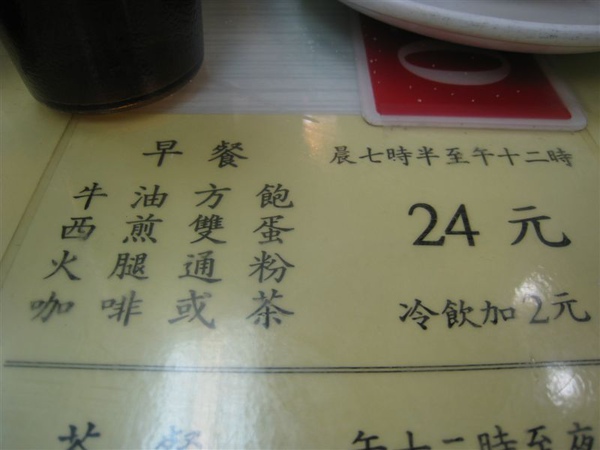 早餐 晨七時半至午十二時
牛油方飽
西煎雙蛋 24元
火腿通粉
咖啡或茶 冷飲加2元
茶餐 午十二時至夜